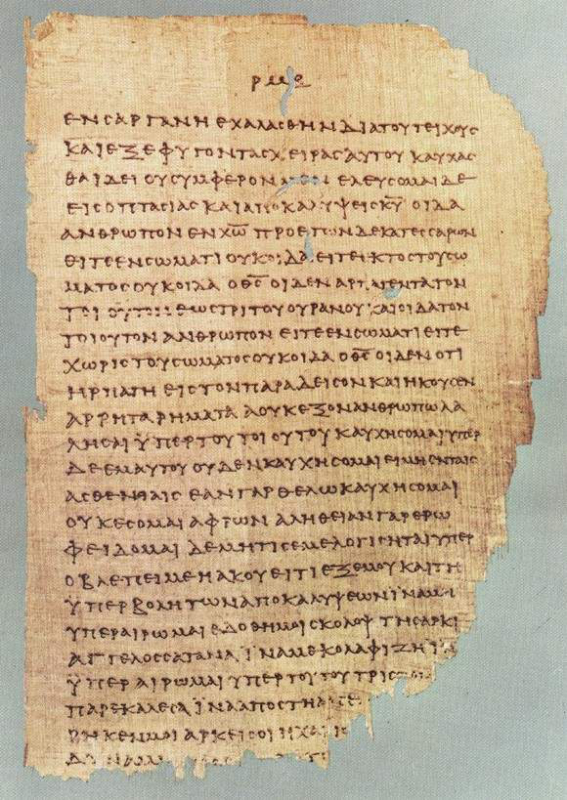 ΡΜΘ
ΕΝϹΑΡΓΑΝΗΕΧΑΛΑϹΘΗΝΔΙΑΤΟΥΤΕΙΧΟΥϹ
ΚΑΙΕΞΕΦΥΓΟΝΤΑϹΧΕΙΡΑϹΑΥΤΟΥΚΑΥΧΑϹ
ΘΑΙΔΕΙΟΥϹΥΜΦΕΡΟΝΜΕΝΕΛΕΥϹΟΜΑΙΔΕ
ΕΙϹΟΠΤΑϹΙΑϹΚΑΙΑΠΟΚΑΛΥΨΕΙϹΚ̅Υ̅ΟΙΔΑ
ΑΝΘΡΩΠΟΝΕΝΧ̅Ω̅ΠΡΟΕΤΩΝΔΕΚΑΤΕϹϹΑΡΩΝ
ΕΙΤΕΕΝϹΩΜΑΤΙΟΥΚΟΙΔΑΕΙΤΕΕΚΤΟϹΤΟΥϹΩ
ΜΑΤΟϹΟΥΚΟΙΔΑΟΘ̅Ϲ̅ΟΙΔΕΝΑΡΠΑΓΕΝΤΑΤΟΝ
ΤΟΙΟΥΤΟΝΕΩϹΤΡΙΤΟΥΟΥΡΑΝΟΥΚΑΙΟΙΔΑΤΟΝ
ΤΟΙΟΥΤΟΝΑΝΘΡΩΠΟΝΕΙΤΕΕΝϹΩΜΑΤΙΕΙΤΕ
ΧΩΡΙϹΤΟΥϹΩΜΑΤΟϹΟΥΚΟΙΔΑΟΘ̅Ϲ̅ΟΙΔΕΝΟΤΙ
ΗΡΠΑΓΗΕΙϹΤΟΝΠΑΡΑΔΕΙϹΟΝΚΑΙΗΚΟΥϹΕΝ
ΑΡΡΗΤΑΡΗΜΑΤΑΑΟΥΚΕΞΟΝΑΝΘΡΩΠΩΛΑ
ΛΗϹΑΙΫΠΕΡΤΟΥΤΟΙΟΥΤΟΥΚΑΥΧΗϹΟΜΑΙΥΠΕΡ
ΔΕΕΜΑΥΤΟΥΟΥΔΕΝΚΑΥΧΗϹΟΜΑΙΕΙΜΗΕΝΤΑΙϹ
ΑϹΘΕΝΕΙΑΙϹΕΑΝΓΑΡΘΕΛΩΚΑΥΧΗϹΟΜΑΙ
ΟΥΚΕϹΟΜΑΙΑΦΡΩΝΑΛΗΘΕΙΑΝΓΑΡΕΡΩ
ΦΕΙΔΟΜΑΙΔΕΜΗΤΙϹΕΜΕΛΟΓΙϹΗΤΑΙΥΠΕΡ
ΟΒΛΕΠΕΙΜΕΗΑΚΟΥΕΙΤΙΕΞΕΜΟΥΚΑΙΤΗ
ΫΠΕΡΒΟΛΗΤΩΝΑΠΟΚΑΛΥΨΕΩΝΪΝΑΜΗ
ΥΠΕΡΑΙΡΩΜΑΙΕΔΟΘΗΜΟΙϹΚΟΛΟΨΤΗϹΑΡΚΙ
ΑΓΓΕΛΟϹϹΑΤΑΝΑΪΝΑΜΕΚΟΛΑΦΙΖΗΪΝΑ
ΫΠΕΡΑΙΡΩΜΑΙΥΠΕΡΤΟΥΤΟΥΤΡΙϹ
ΠΑΡΕΚΑΛΕϹΑΪΝΑΑΠΟϹΤΗ
ΡΗΚΕΝΜΟΙΑΡΚΕΙϹΟΙΗΧΑΡΙϹ